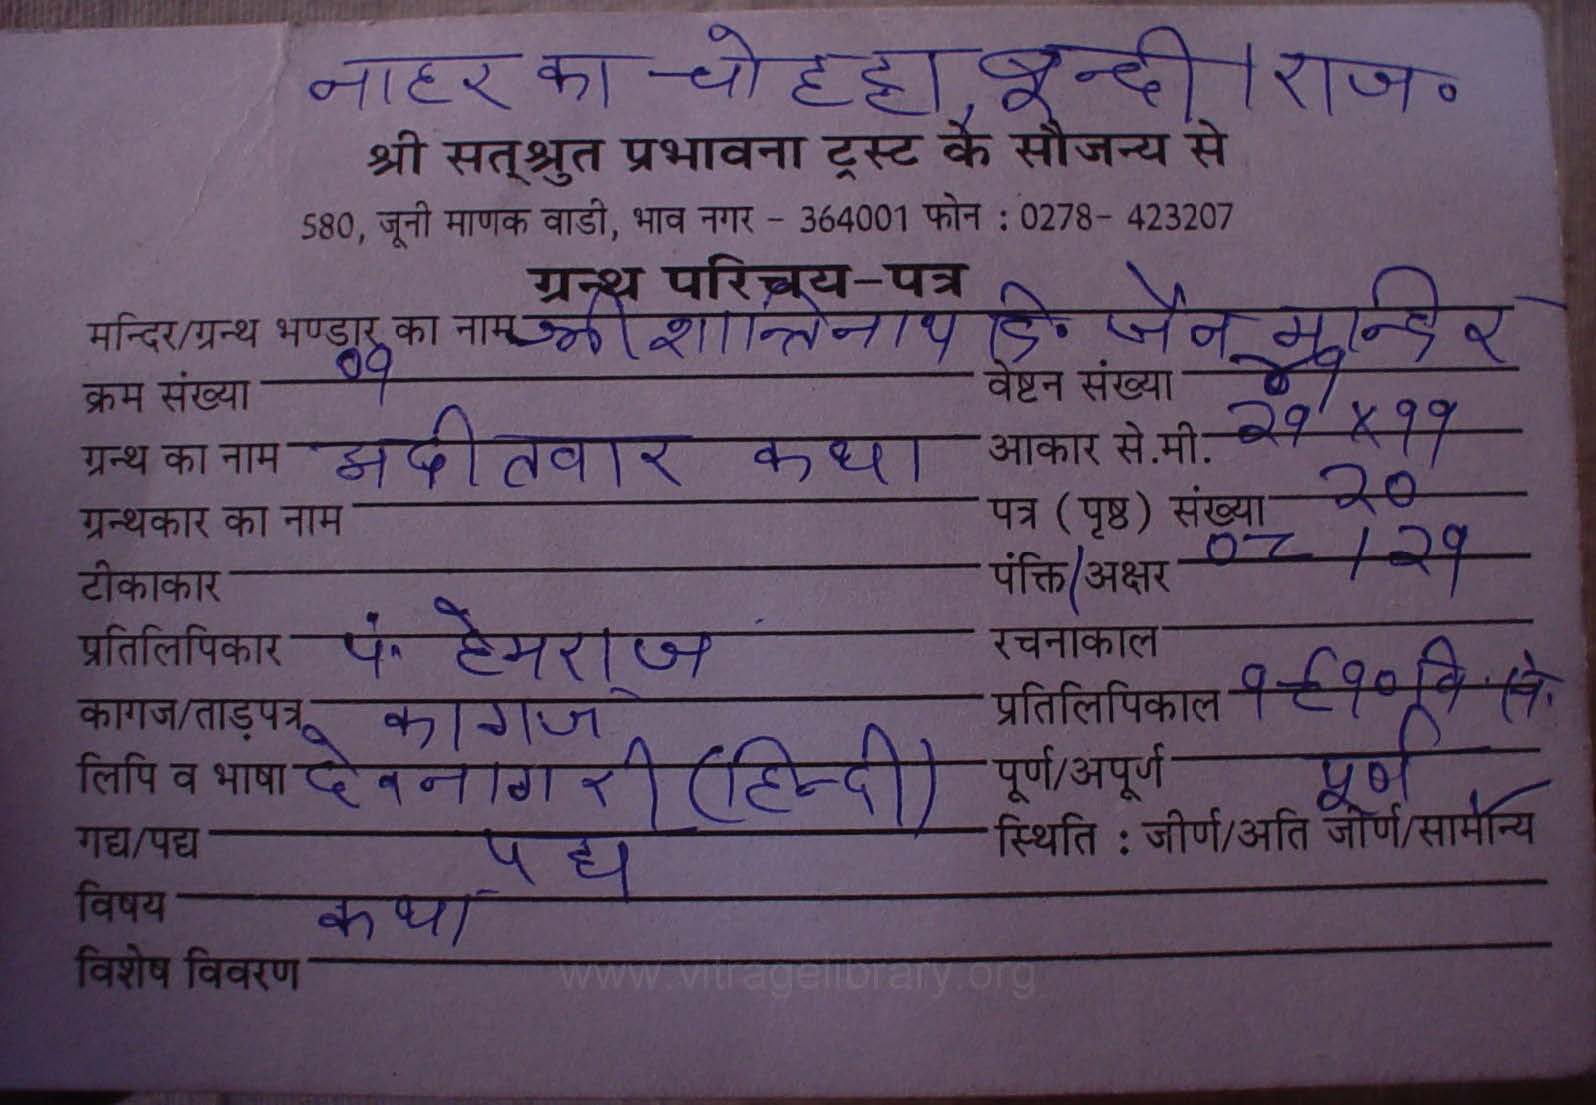 नाहर का चोहट्टा, बून्दी । राज.
श्री सत्श्रुत प्रभावना ट्रस्ट के सौजन्य से
580, जूनी माणक वाडी, भाव नगर - 364001 फोन : 0278- 423207
ग्रन्थ परिचय-पत्र
मन्दिर/ग्रन्थ भण्डार का नाम श्री शान्तिनाथ दि. जैन मन्दिर
क्रम संख्या ०१ वेष्टन संख्या
ग्रन्थ का नाम अदीतवार कथा आकार से.मी. २१ x ११
ग्रन्थकार का नाम पत्र (पृष्ठ) संख्या २०
टीकाकार पंक्ति/अक्षर ०८ / २१
प्रतिलिपिकार पं. हेमराज रचनाकाल
कागज/ताड़पत्र कागज प्रतिलिपिकाल १९१० वि. सं.
लिपि व भाषा देवनागरी (हिन्दी) पूर्ण/अपूर्ण पूर्ण
गद्य/पद्य पद्य स्थिति : जीर्ण/अति जीर्ण/सामान्य
विषय कथा
विशेष विवरण
www.vitragelibrary.org